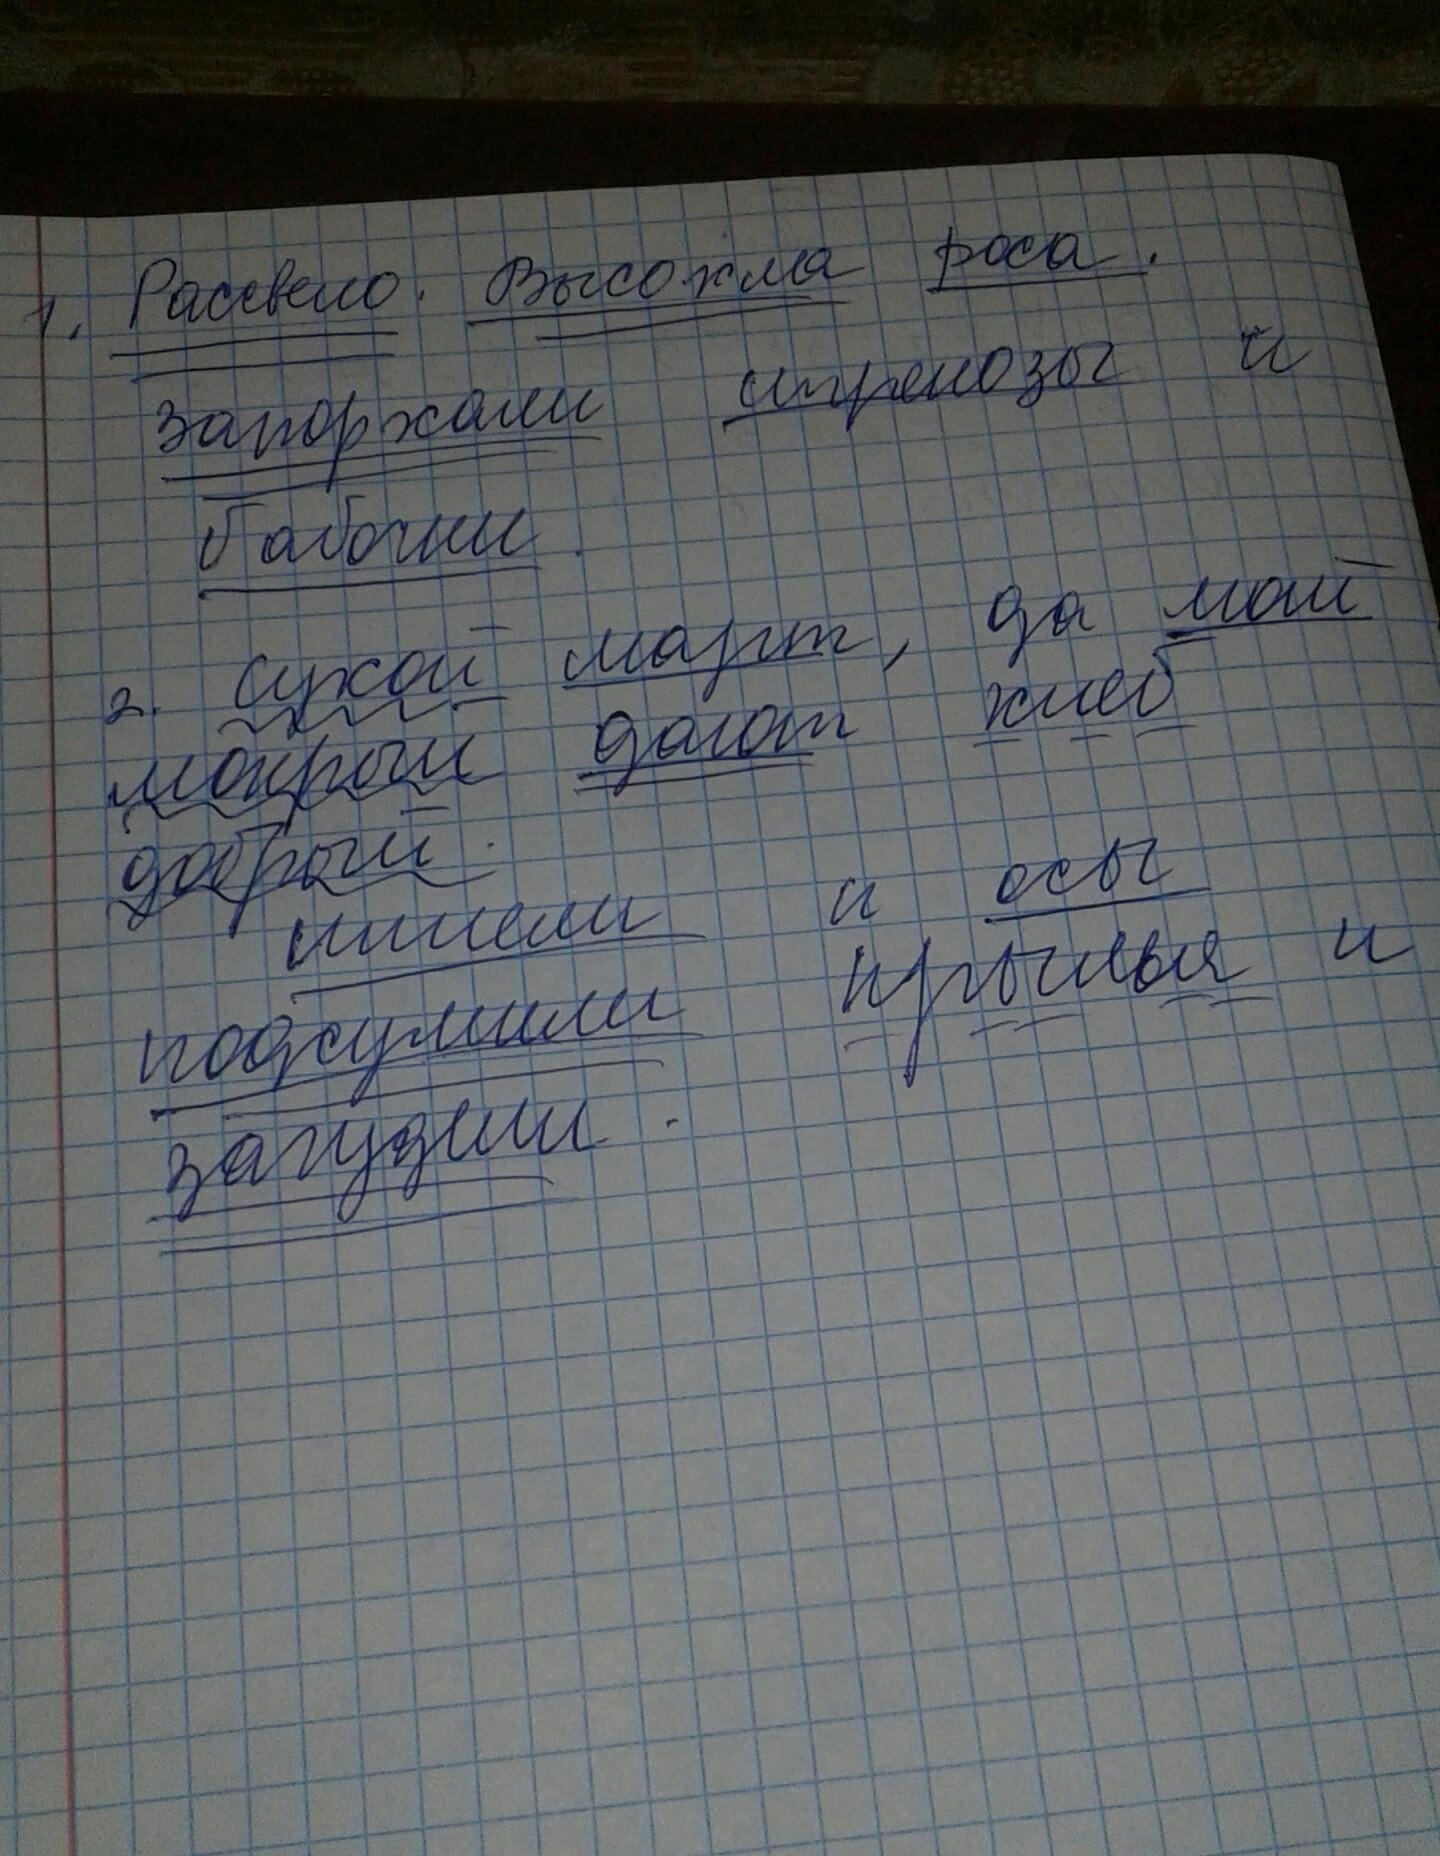 1. Рассвело. Высохла роса.
запорхали стрекозы и
бабочки.
2. сухой март, да май
мокрый дают хлеб
добрый.
шмели и осы
подсушили крылья и
загудели.